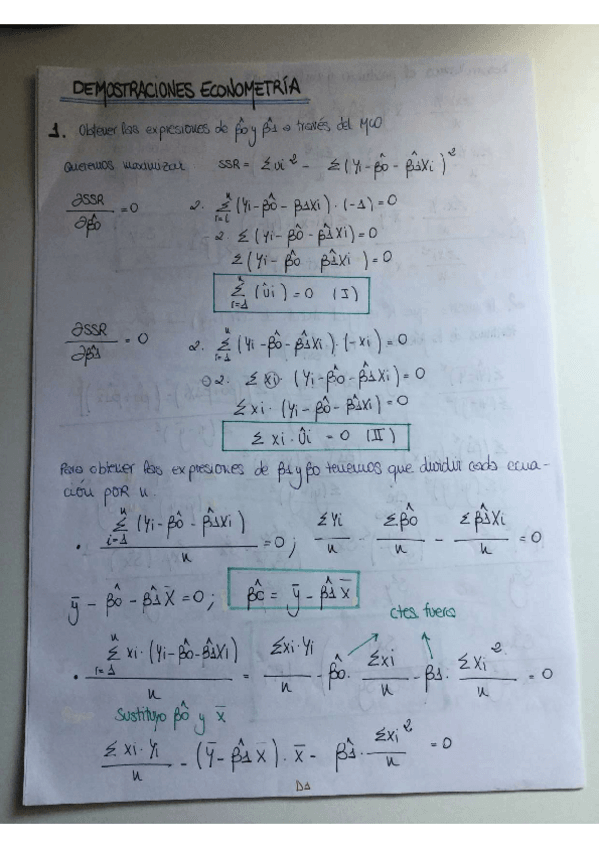 DEMOSTRACIONES ECONOMETRÍA
1. Obtener las expresiones de β̂0 y β̂1 a través del MCO
Queremos maximizar SSR = Σ ui² = Σ (Yi - β̂0 - β̂1Xi)²
∂SSR/∂β̂0 = 0   2· Σⁿᵢ₌₁ (Yi - β̂0 - β̂1Xi)·(-1) = 0
-2· Σ (Yi - β̂0 - β̂1Xi) = 0
Σ (Yi - β̂0 β̂1Xi) = 0
Σⁿᵢ₌₁ (ûi) = 0 (I)
∂SSR/∂β̂1 = 0   2· Σⁿᵢ₌₁ (Yi - β̂0 - β̂1Xi)·(-xi) = 0
-2· Σ xi· (Yi - β̂0 - β̂1Xi) = 0
Σ xi· (Yi - β̂0 - β̂1Xi) = 0
Σ xi · ûi = 0 (II)
Para obtener las expresiones de β1 y β0 tenemos que dividir cada ecua-
ción por n.
· Σⁿᵢ₌₁ (Yi - β̂0 - β̂1Xi) / n = 0 ; ΣYi/n - Σβ̂0/n - Σβ̂1Xi/n = 0
ȳ - β̂0 - β̂1X̄ = 0 ; β̂0 = ȳ - β̂1X̄
ctes. fuera
· Σⁿᵢ₌₁ xi· (Yi - β̂0 - β̂1Xi) / n = Σxi·Yi/n - β̂0· Σxi/n - β̂1· Σxi²/n = 0
Sustituyo β̂0 y x̄
Σxi·Yi/n - (ȳ - β̂1X̄)· x̄ - β̂1· Σxi²/n = 0